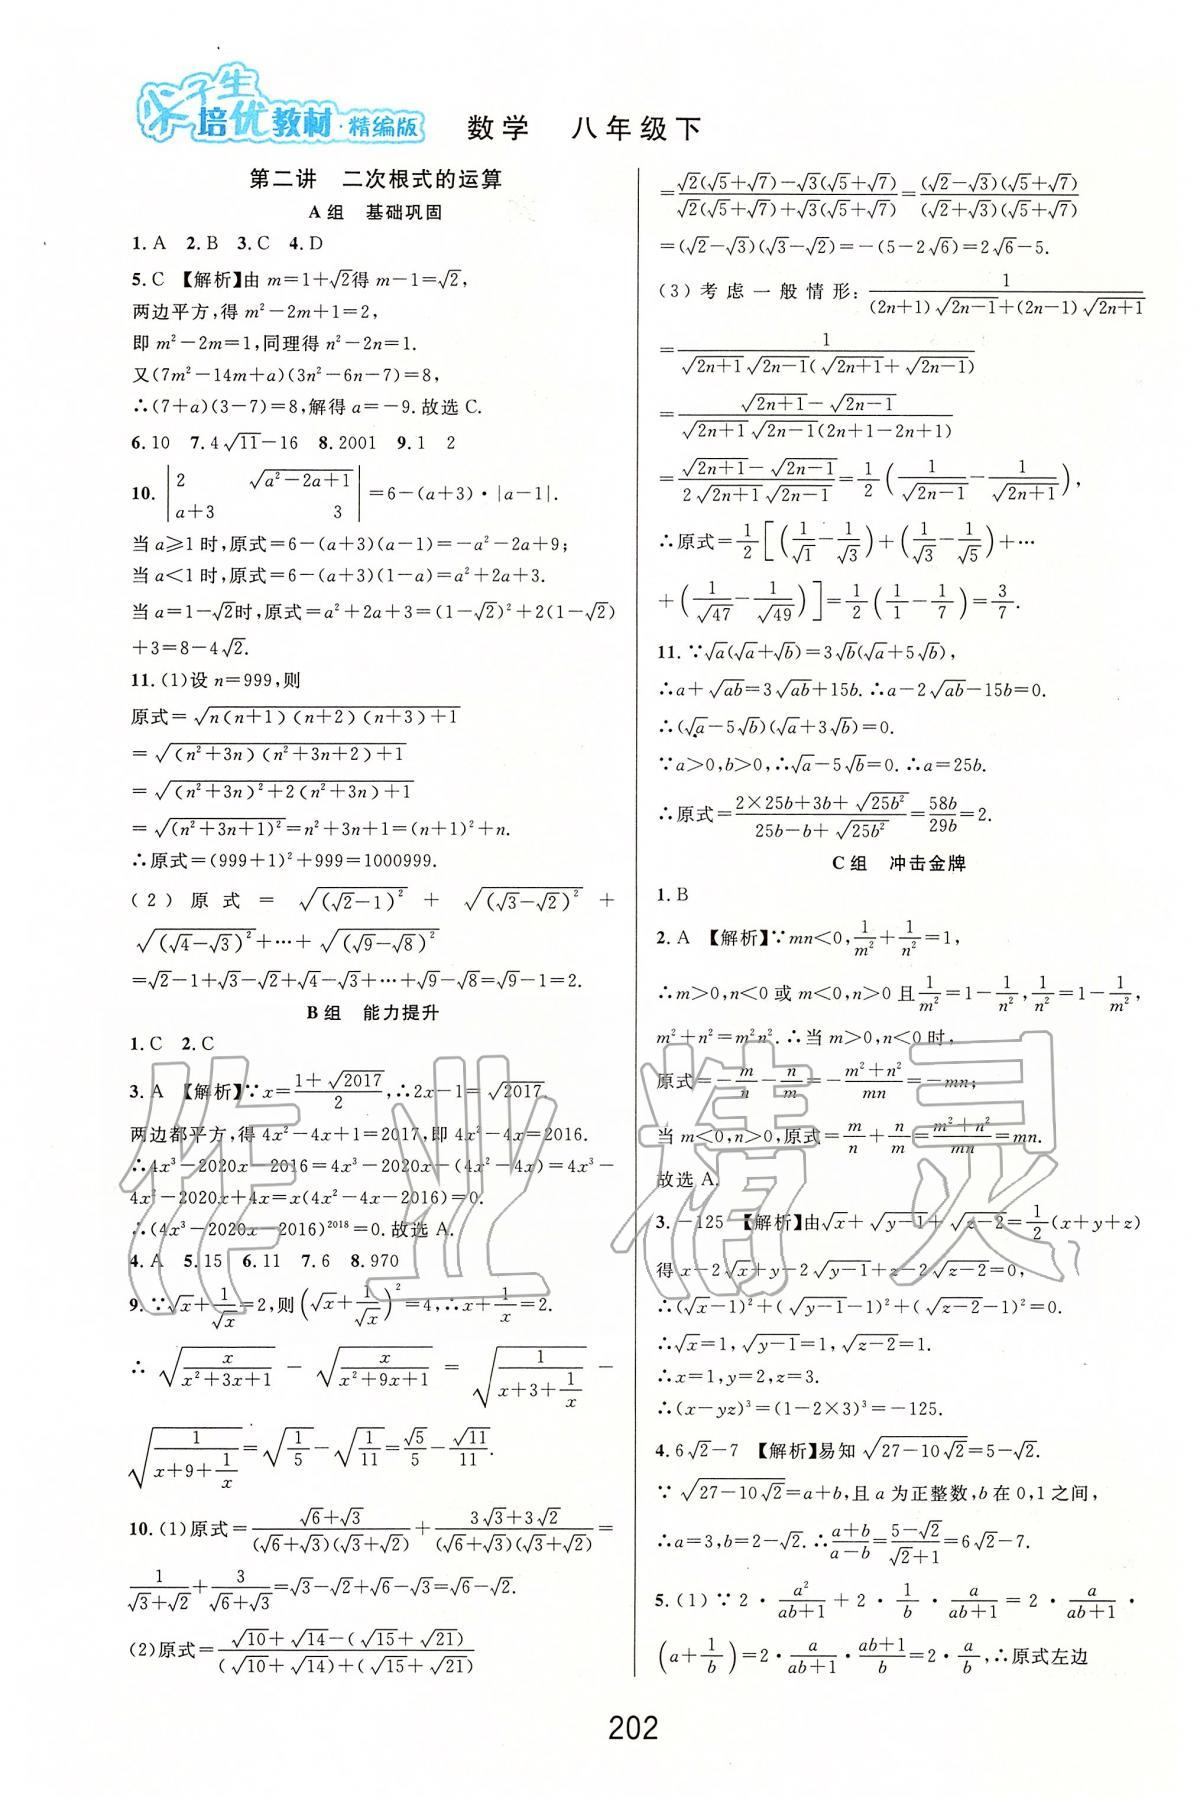 尖子生
培优教材·精编版 数学 八年级下
第二讲 二次根式的运算
A组 基础巩固
1.A 2.B 3.C 4.D
5.C 【解析】由m=1+√2得m-1=√2,
两边平方,得m²-2m+1=2,
即m²-2m=1,同理得n²-2n=1.
又(7m²-14m+a)(3n²-6n-7)=8,
∴(7+a)(3-7)=8,解得a=-9.故选C.
6.10 7.4√11-16 8.2001 9.1 2
10. |2 √(a²-2a+1)|
|a+3 3| =6-(a+3)·|a-1|.
当a≥1时,原式=6-(a+3)(a-1)=-a²-2a+9;
当a<1时,原式=6-(a+3)(1-a)=a²+2a+3.
当a=1-√2时,原式=a²+2a+3=(1-√2)²+2(1-√2)
+3=8-4√2.
11.(1)设n=999,则
原式=√(n(n+1)(n+2)(n+3)+1)
=√((n²+3n)(n²+3n+2)+1)
=√((n²+3n)²+2(n²+3n)+1)
=√((n²+3n+1)²)=n²+3n+1=(n+1)²+n.
∴原式=(999+1)²+999=1000999.
(2)原式=√((√2-1)²)+√((√3-√2)²)+
√((√4-√3)²)+⋯+√((√9-√8)²)
=√2-1+√3-√2+√4-√3+⋯+√9-√8=√9-1=2.
B组 能力提升
1.C 2.C
3.A 【解析】∵x=(1+√2017)/2,∴2x-1=√2017,
两边都平方,得4x²-4x+1=2017,即4x²-4x=2016.
∴4x³-2020x-2016=4x³-2020x-(4x²-4x)=4x³-
4x²-2020x+4x=x(4x²-4x-2016)=0.
∴(4x³-2020x-2016)²⁰¹⁸=0.故选A.
4.A 5.15 6.11 7.6 8.970
9.∵√x+1/√x=2,则(√x+1/√x)²=4,∴x+1/x=2.
∴√(x/(x²+3x+1))-√(x/(x²+9x+1))=√(1/(x+3+1/x))-
√(1/(x+9+1/x))=√(1/5)-√(1/11)=√5/5-√11/11.
10.(1)原式=(√6+√3)/((√6+√3)(√3+√2))+(3√3+3√2)/((√6+√3)(√3+√2))=
1/(√3+√2)+3/(√6+√3)=√3-√2+√6-√3=√6-√2.
(2)原式=(√10+√14-(√15+√21))/((√10+√14)+(√15+√21))
=(√2(√5+√7)-√3(√5+√7))/(√2(√5+√7)+√3(√5+√7))=((√2-√3)(√5+√7))/((√2+√3)(√5+√7))
=(√2-√3)(√3-√2)=-(5-2√6)=2√6-5.
(3)考虑一般情形:1/((2n+1)√(2n-1)+(2n-1)√(2n+1))
=1/(√(2n+1)√(2n-1)(√(2n+1)+√(2n-1)))
=(√(2n+1)-√(2n-1))/(√(2n+1)√(2n-1)(2n+1-2n+1))
=(√(2n+1)-√(2n-1))/(2√(2n+1)√(2n-1))=1/2(1/√(2n-1)-1/√(2n+1)),
∴原式=1/2[(1/√1-1/√3)+(1/√3-1/√5)+⋯
+(1/√47-1/√49)]=1/2(1/1-1/7)=3/7.
11.∵√a(√a+√b)=3√b(√a+5√b),
∴a+√ab=3√ab+15b.∴a-2√ab-15b=0.
∴(√a-5√b)(√a+3√b)=0.
∵a>0,b>0,∴√a-5√b=0.∴a=25b.
∴原式=(2×25b+3b+√(25b²))/(25b-b+√(25b²))=58b/29b=2.
C组 冲击金牌
1.B
2.A 【解析】∵mn<0,1/m²+1/n²=1,
∴m>0,n<0或m<0,n>0且1/m²=1-1/n²,1/n²=1-1/m²,
m²+n²=m²n².∴当m>0,n<0时,
原式=-m/n-n/m=-(m²+n²)/mn=-mn;
当m<0,n>0,原式=m/n+n/m=(m²+n²)/mn=mn.
故选A.
3.-125 【解析】由√x+√(y-1)+√(z-2)=1/2(x+y+z)
得x-2√x+y-2√(y-1)+z-2√(z-2)=0,
∴(√x-1)²+(√(y-1)-1)²+(√(z-2)-1)²=0.
∴√x=1,√(y-1)=1,√(z-2)=1.
∴x=1,y=2,z=3.
∴(x-yz)³=(1-2×3)³=-125.
4.6√2-7 【解析】易知√(27-10√2)=5-√2.
∵√(27-10√2)=a+b,且a为正整数,b在0,1之间,
∴a=3,b=2-√2.∴(a+b)/(a-b)=(5-√2)/(√2+1)=6√2-7.
5.(1)∵2·a²/(ab+1)+2·1/b·a/(ab+1)=2·a/(ab+1)·
(a+1/b)=2·a/(ab+1)·(ab+1)/b=2·a/b,∴原式左边
202
作业精灵